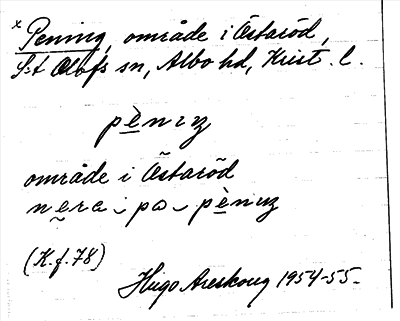 x Pening, område i Östaröd,
S:t Olofs sn, Albo hd, Krist. l.
pènıŋ
område i Östaröd
nera pa pènıŋ
(K.f. 78)
Hugo Areskoug 1954-55.